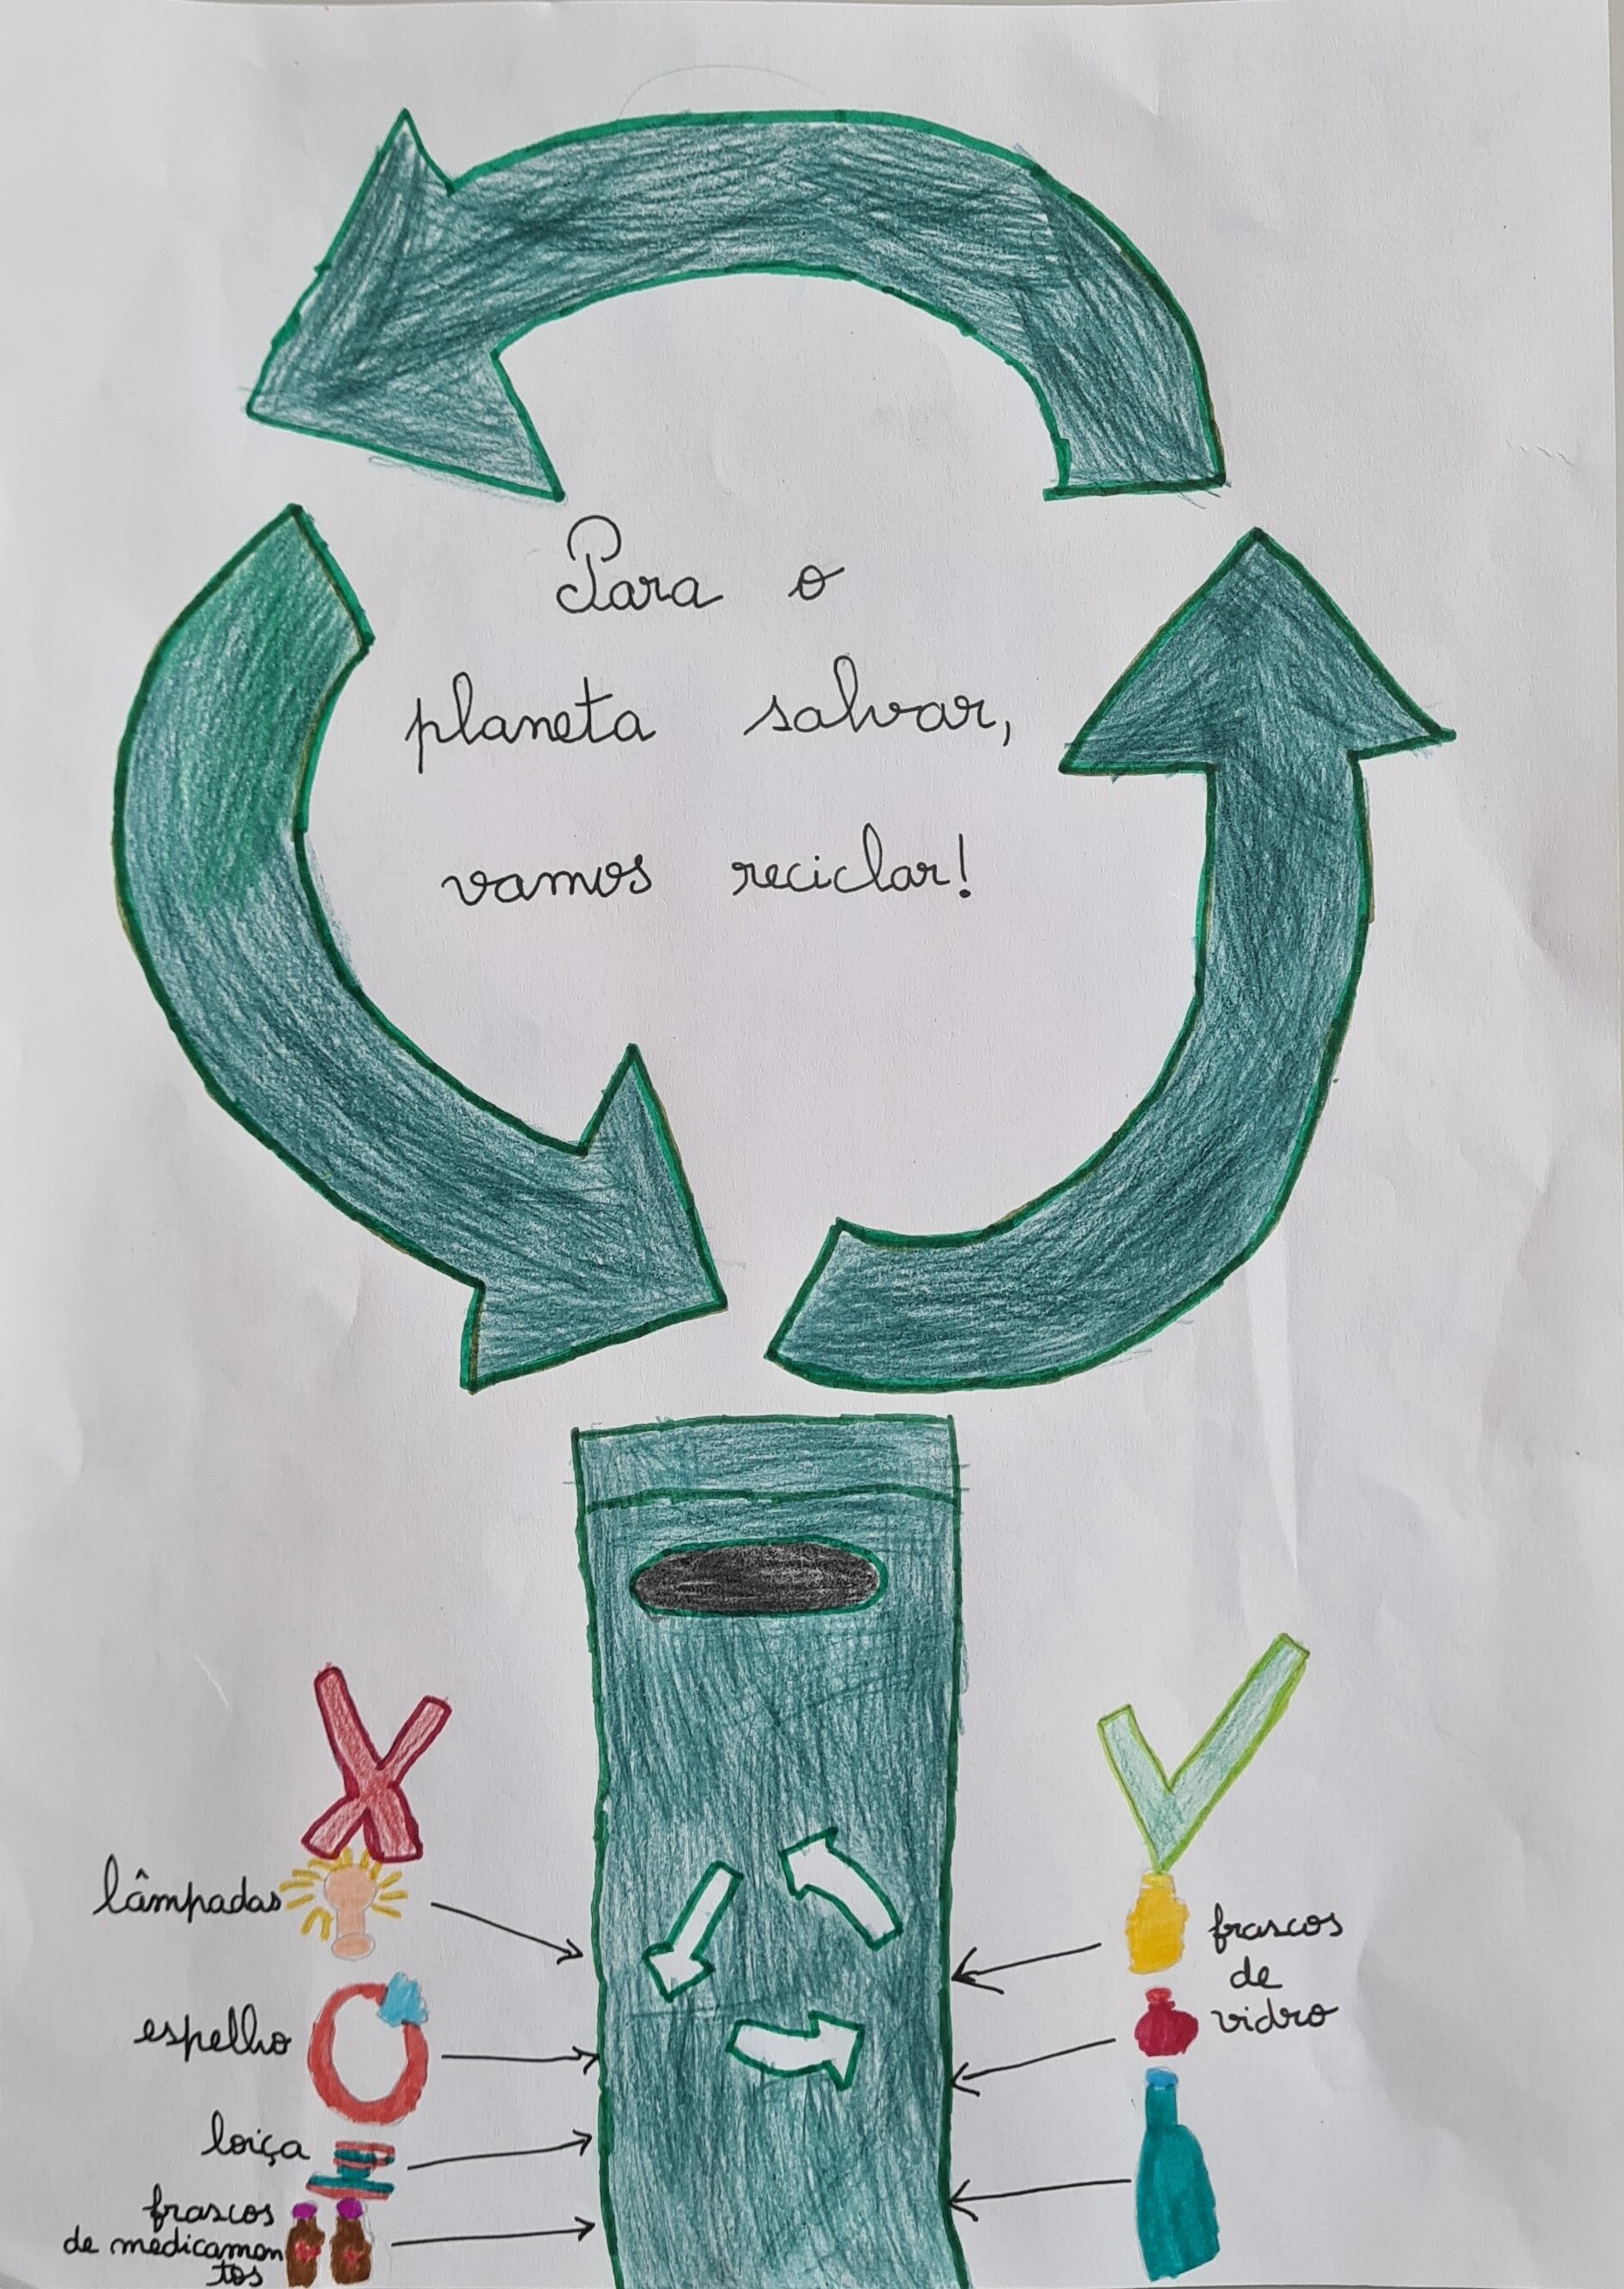 Para o
planeta salvar,
vamos reciclar!
lâmpadas
espelho
loiça
frascos
de medicamen
tos
frascos
de
vidro